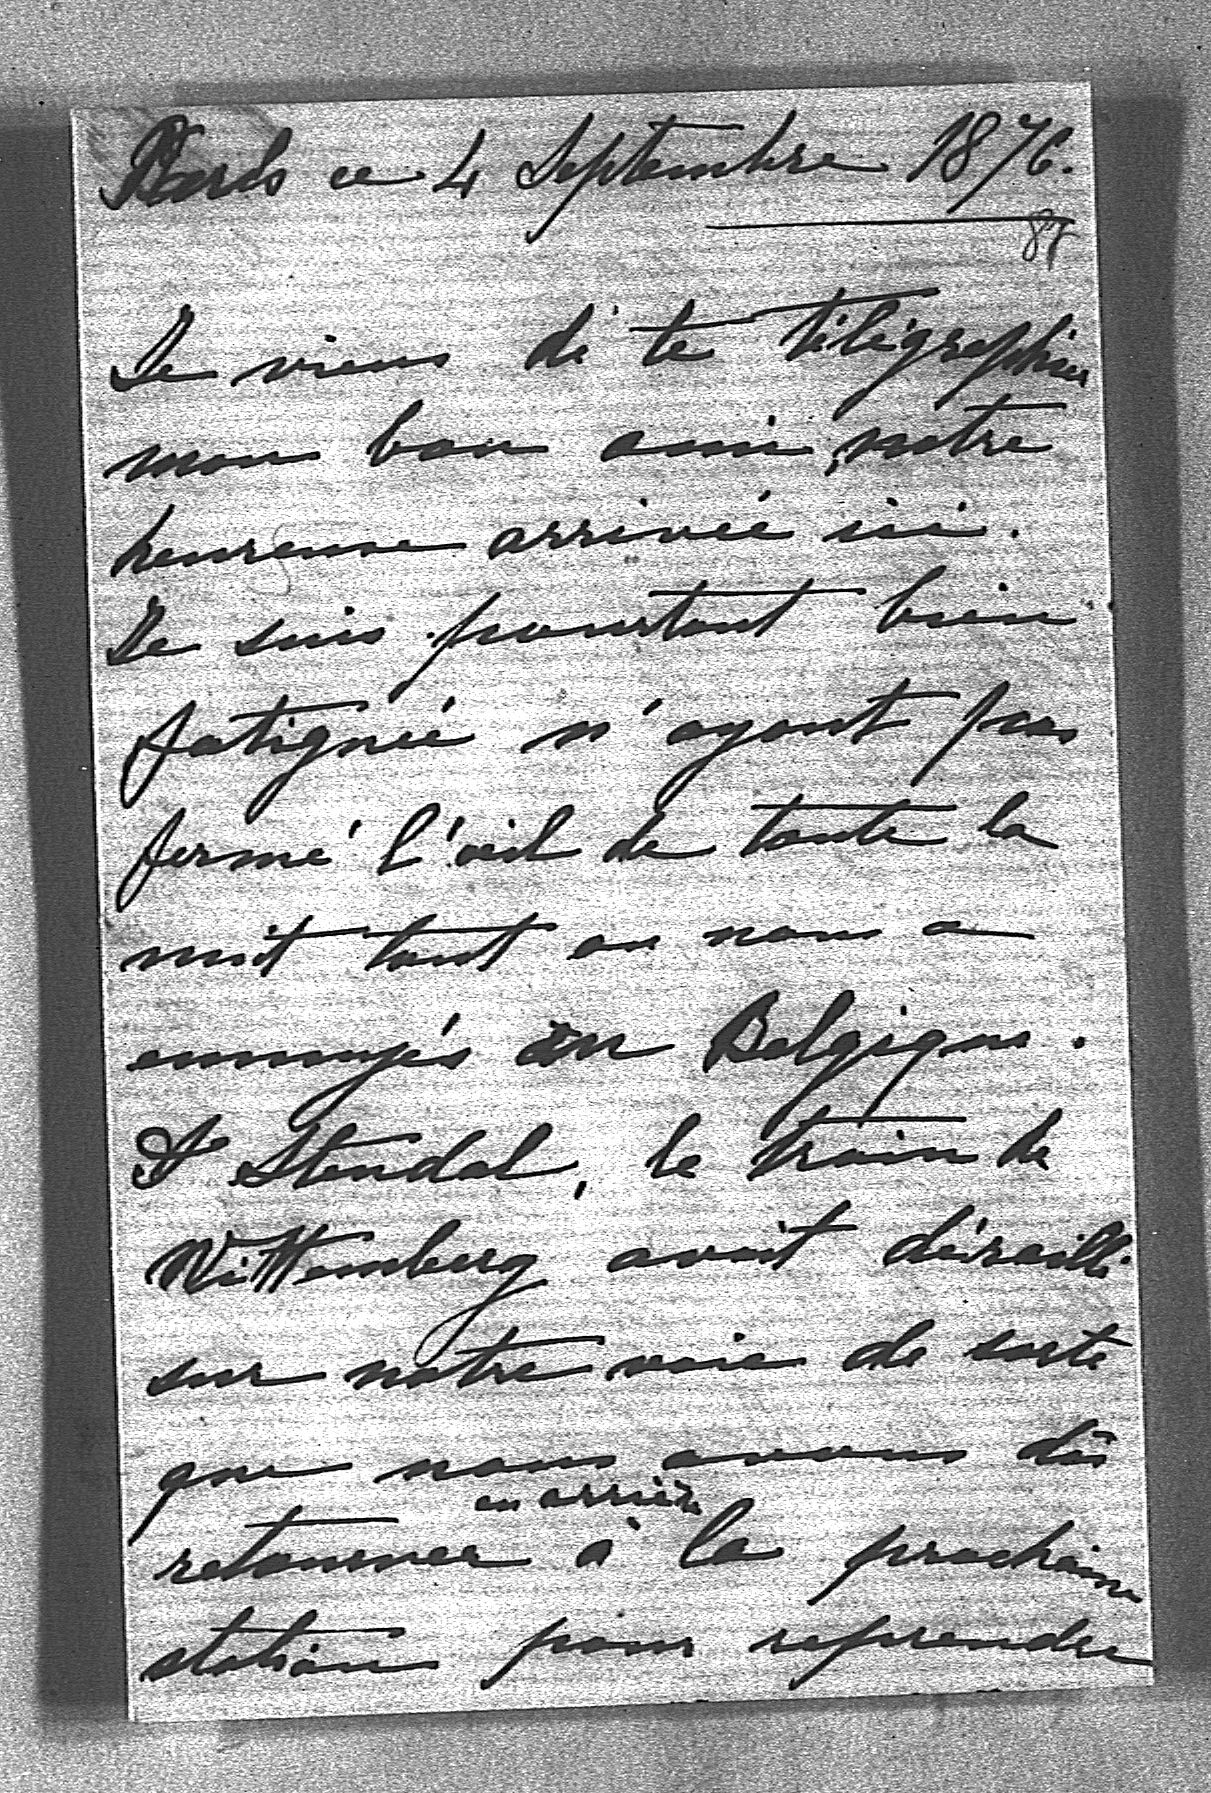 Paris ce 4 Septembre 1876.
87
Je viens de te télégraphier
mon bon ami, notre
heureuse arrivée ici.
Je suis pourtant bien
fatiguée n'ayant pas
fermé l'œil de toute la
nuit tant on nous a
ennuyés en Belgique.
A Stendal, le train de
Wittemberg avait déraillé
sur notre voie de sorte
que nous avons dû
en arrière
retourner à la prochaine
station pour reprendre